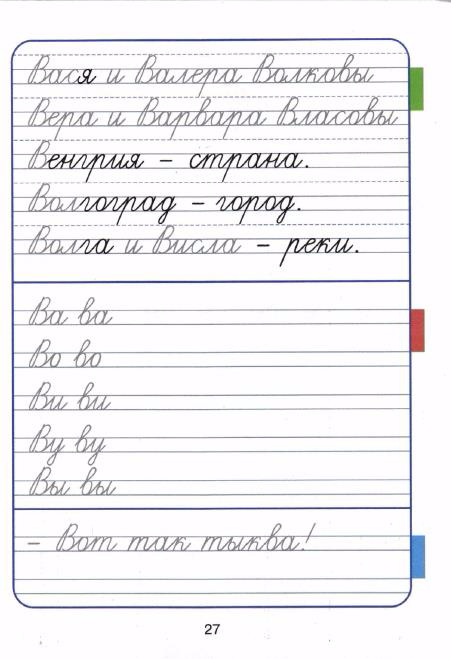 Вася и Валера Волковы
Вера и Варвара Власовы
Венгрия – страна.
Волгоград – город.
Волга и Висла – реки.
Ва ва
Во во
Ви ви
Ву ву
Вы вы
– Вот так тыква!
27